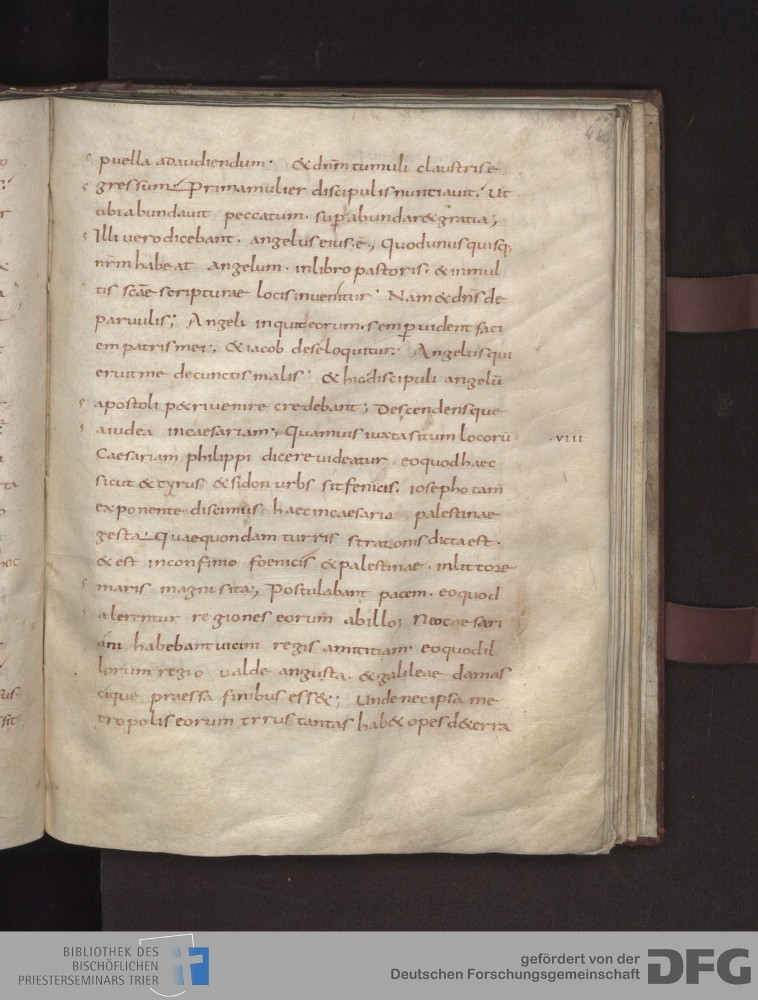 puella adaudiendum· & dnm̄ tumuli claustris e
gressum· Prima mulier discipulis nuntiauit· Ut
ubi abundauit peccatum· sup̄abundar& gratia;
Illi uero dicebant· angelus eius ē; Quod unusquisq;
nr̄m habeat angelum· in libro pastoris· & in mul
tis scae scripturae locis inuenitur· Nam & dn̄s de
paruulis; Angeli inquit eorum· semp̄ uident faci
em patris mei; & iacob de se loquitur; Angelus qui
eruit me de cunctis malis· & hic discipuli angelū
apostoli p&ri uenire credebant; Descendensque
a iudea in caesariam; Quamuis iuxta situm locorū
·VIII
Caesariam philippi dicere uideatur· eo quod haec
sicut & tyrus & sidon urbs sit fenicis· iosepho tam
exponente discimus haec in caesaria palestinae
gesta· Quae quondam turris stratonis dicta est·
& est in confinio foenicis & palestinae· in littore
maris magni sita; Postulabant pacem· eo quod
alerentur regiones eorum ab illo; Neo caesari
ani habebant uicini regis amititiam eo quod il
lorum regio ualde angusta· & galileae damas
cique praessa finibus ess&; Unde nec ipsa me
tropolis eorum tyrus tantas hab& opes de terra
BIBLIOTHEK DES
BISCHÖFLICHEN
PRIESTERSEMINARS TRIER
gefördert von der
Deutschen Forschungsgemeinschaft
DFG